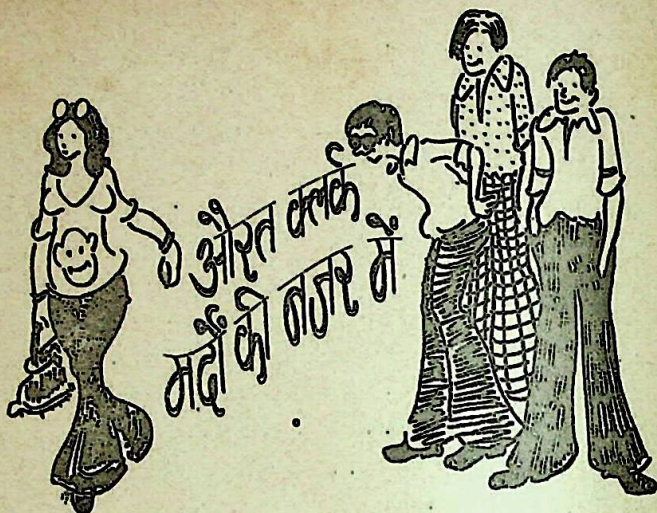 औरत क्लर्क
मर्दों की नजर में